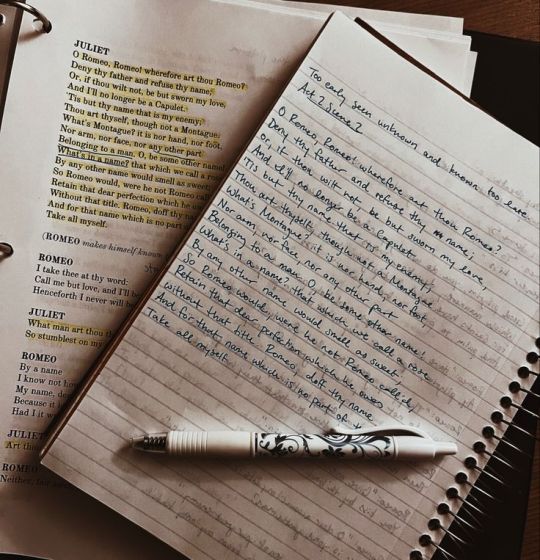 JULIET
O Romeo, Romeo! wherefore art thou Romeo?
Deny thy father and refuse thy name;
Or, if thou wilt not, be but sworn my love,
And I'll no longer be a Capulet.
'Tis but thy name that is my enemy;
Thou art thyself, though not a Montague.
What's Montague? it is nor hand, nor foot,
Nor arm, nor face, nor any other part
Belonging to a man. O, be some other name!
What's in a name? that which we call a rose
By any other name would smell as sweet;
So Romeo would, were he not Romeo call
Retain that dear perfection which he owe
Without that title. Romeo, doff thy name
And for that name which is no part
Take all myself.
(ROMEO makes himself known
ROMEO
I take thee at thy word:
Call me but love, and I'll be
Henceforth I never will be
JULIET
What man art thou
So stumblest on my
ROMEO
By a name
I know not how
My name, dea
Because it
Had I it w
JULIET
Art tho
ROMEO
Neither, fair
Too early seen unknown and known too late
Act 2 Scene 2
O Romeo, Romeo! wherefore art thou Romeo?
Deny thy father and refuse thy name;
or, if thou wilt not be but sworn my love,
And I'll no longer be a Capulet.
Tis but thy name that is my enemy,
Thou art thyself, though not a Montague
What's Montague? it is nor hand, nor foot
Nor arm, nor face, nor any other part
Belonging to a man. O, be some other name!
What's in a name? that which we call a rose
By any other name would smell as sweet,
So Romeo would, were he not Romeo call'd,
Retain that dear perfection which he owes
without that title, Romeo, doff thy name
And for that name which is no part of
Take all myself